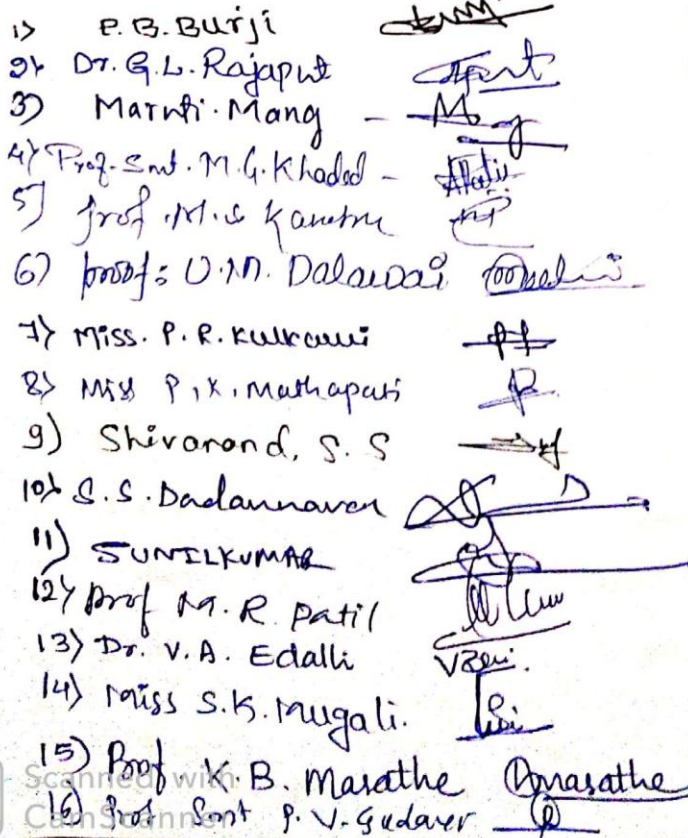 1) P.B. Burji
2) Dr. G.L. Rajaput
3) Maruti. Mang -
4) Prof. Smt. M.G. Khaded -
5) prof. M.S
6) proof: U.M. Dalawai
7) Miss. P. R. Kulkarni
8) Miss P.K. Mathapati
9) Shivanand. S. S
10) S.S. Dadannavar
11) SUNILKUMAR
12) prof M.R. patil
13) Dr. V.A. Edalli
14) Miss S.K. Mugali.
15) Prof. K.B. Marathe Marathe
Scanned with
16) Prof Smt P. V. Gudaver
CamScanner